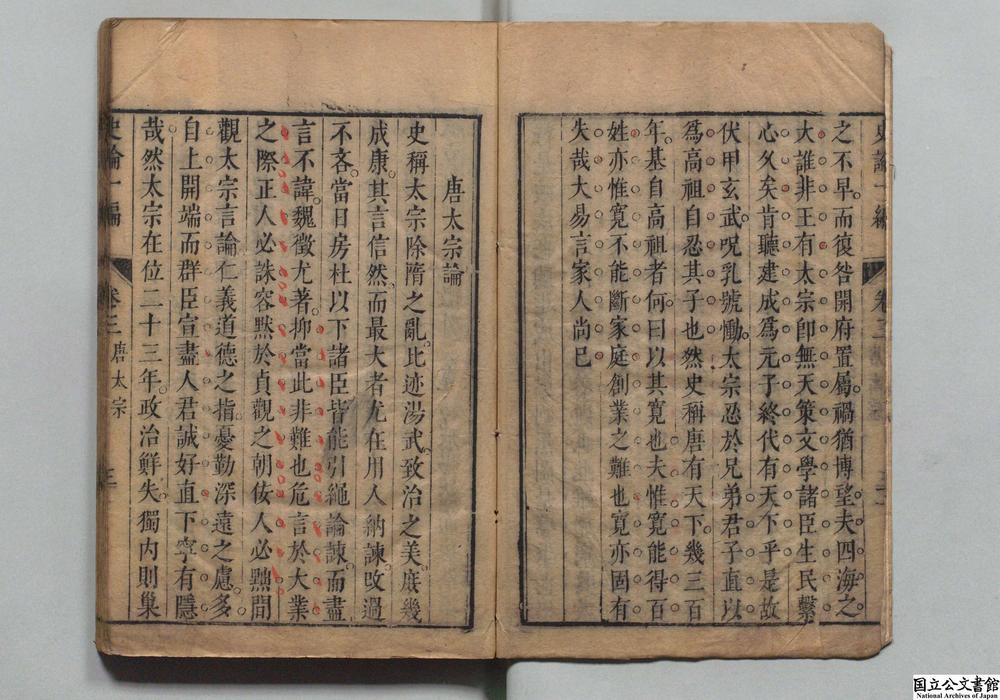 之不早而復咎開府置屬禍猶博望夫四海之
大誰非王有太宗卽無天策文學諸臣生民繫
心久矣肯聽建成爲元子終代有天下乎是故
伏甲玄武呪乳號慟太宗忍於兄弟君子直以
爲高祖自忍其子也然史稱唐有天下幾三百
年基自高祖者何曰以其寬也夫惟寬能得百
姓亦惟寬不能斷家庭創業之難也寬亦固有
失哉大易言家人尚已
唐太宗論
史稱太宗除隋之亂比迹湯武致治之美庶幾
成康其言信然而最大者尤在用人納諫改過
不吝當日房杜以下諸臣皆能引繩論諫而盡
言不諱魏徵尤著抑當此非難也危言於大業
之際正人必誅容默於貞觀之朝佞人必黜間
觀太宗言論仁義道德之指憂勤深遠之慮多
自上開端而群臣宣盡人君誠好直下寧有隱
哉然太宗在位二十三年政治鮮失獨內則巢
史論一編 卷三 唐太宗 三
国立公文書館
National Archives of Japan